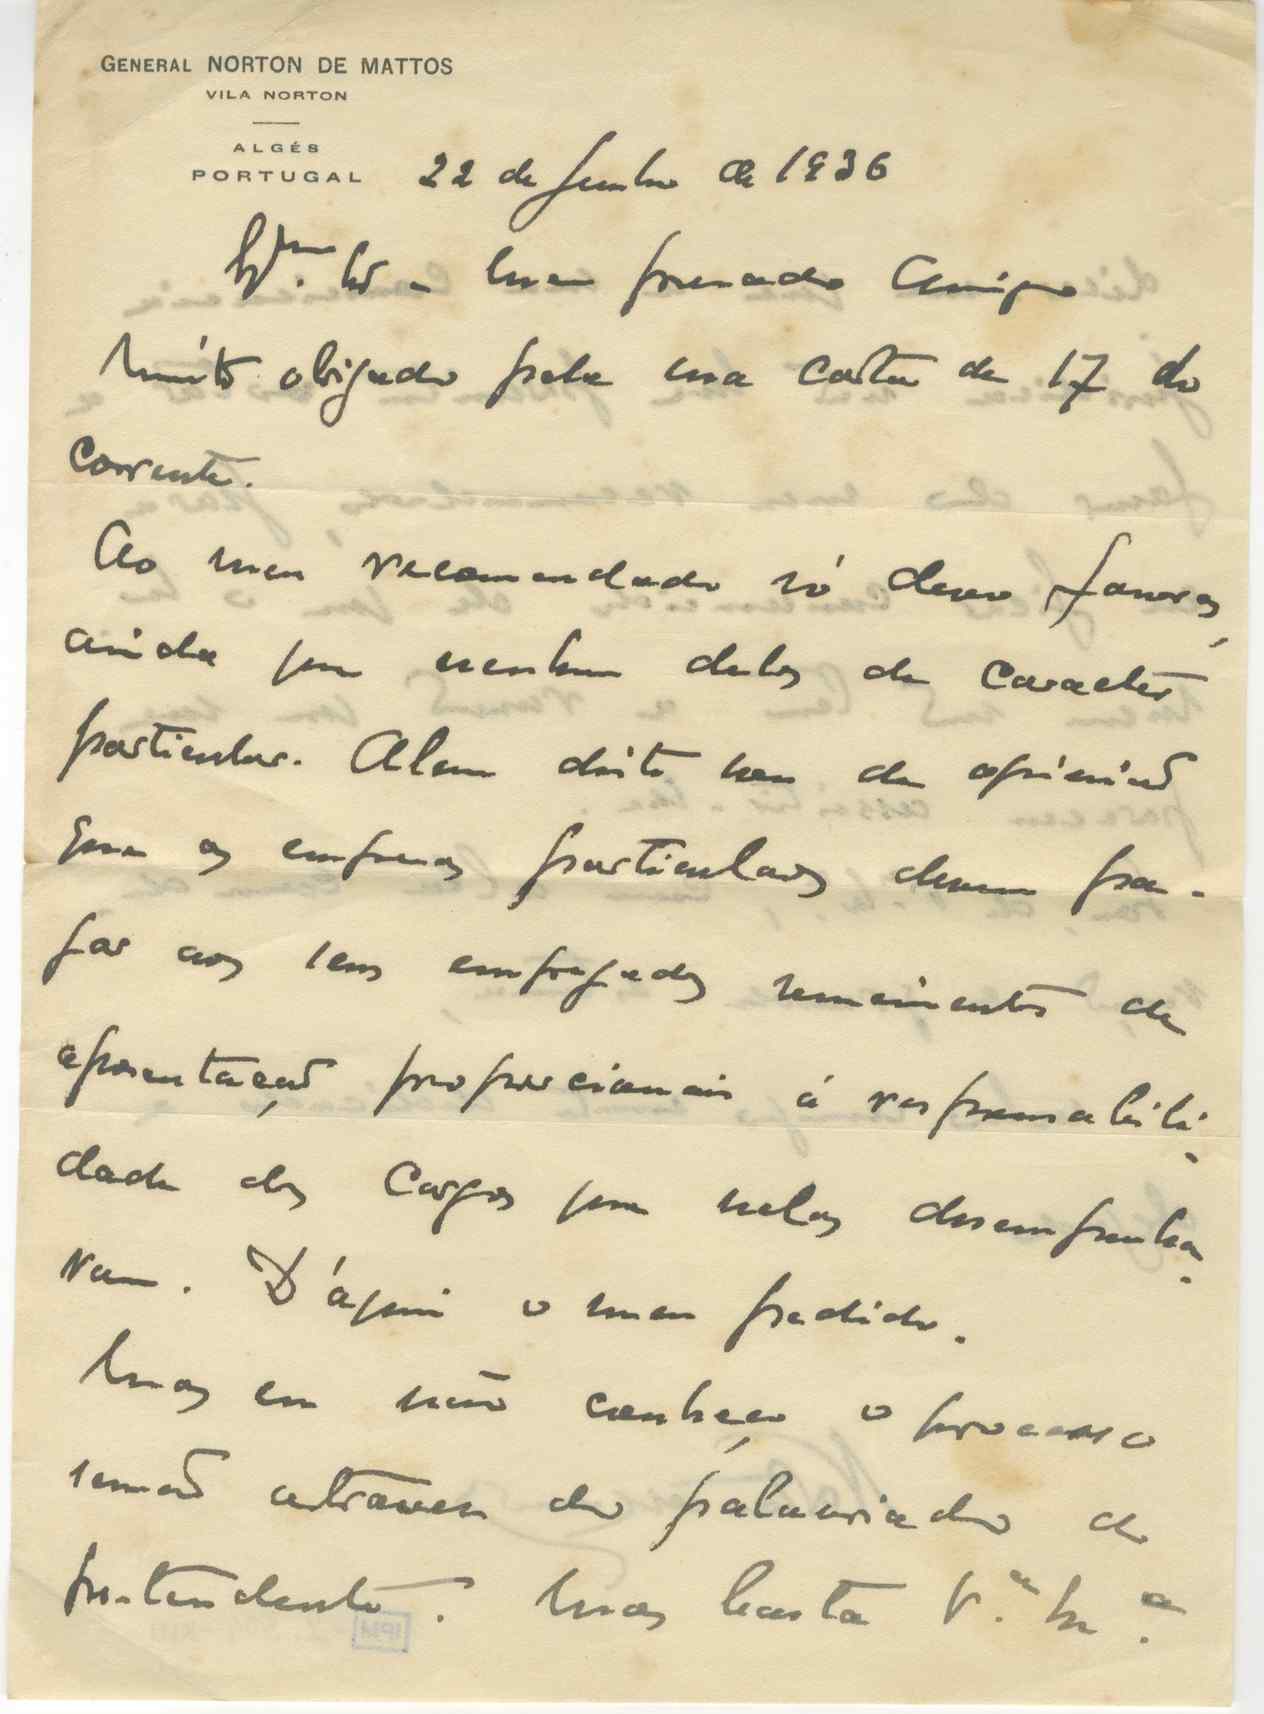 GENERAL NORTON DE MATTOS
VILA NORTON
ALGÉS
PORTUGAL
22 de Junho de 1936
Ex.mo Sr. - Meu presado Amigo
Muito obrigado pela sua carta de 17 do
corrente.
Ao meu recomendado só devo favores,
ainda que nenhum deles de caracter
particular. Alem disto sou de opinião
que as empresas particulares devem pa-
gar aos seus empregados vencimentos de
aposentação proporcionais á responsabili-
dade dos cargos que nelas desempenha-
vam. D'áqui o meu pedido.
Mas eu não conheço o processo
senão atravez do palavriado do
pretendente. Mas basta V.a Ex.a